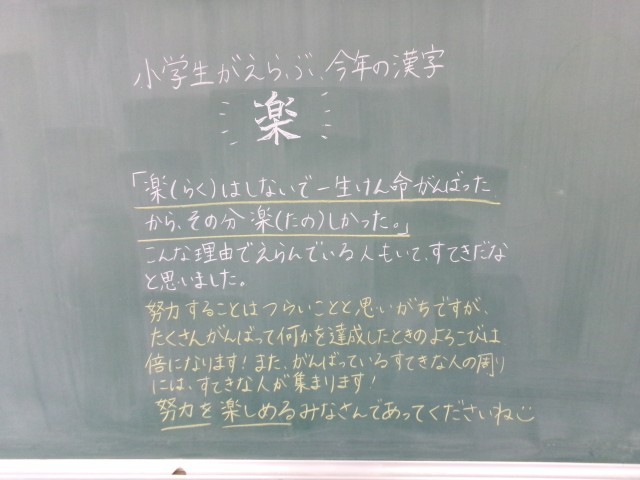 小学生がえらぶ、今年の漢字
楽
「楽(らく)はしないで一生けん命がんばった
から、その分楽(たの)しかった。」
こんな理由でえらんでいる人もいて、すてきだな
と思いました。
努力することはつらいことと思いがちですが、
たくさんがんばって何かを達成したときのよろこびは
倍になります!また、がんばっているすてきな人の周り
には、すてきな人が集まります!
努力を楽しめるみなさんであってくださいね